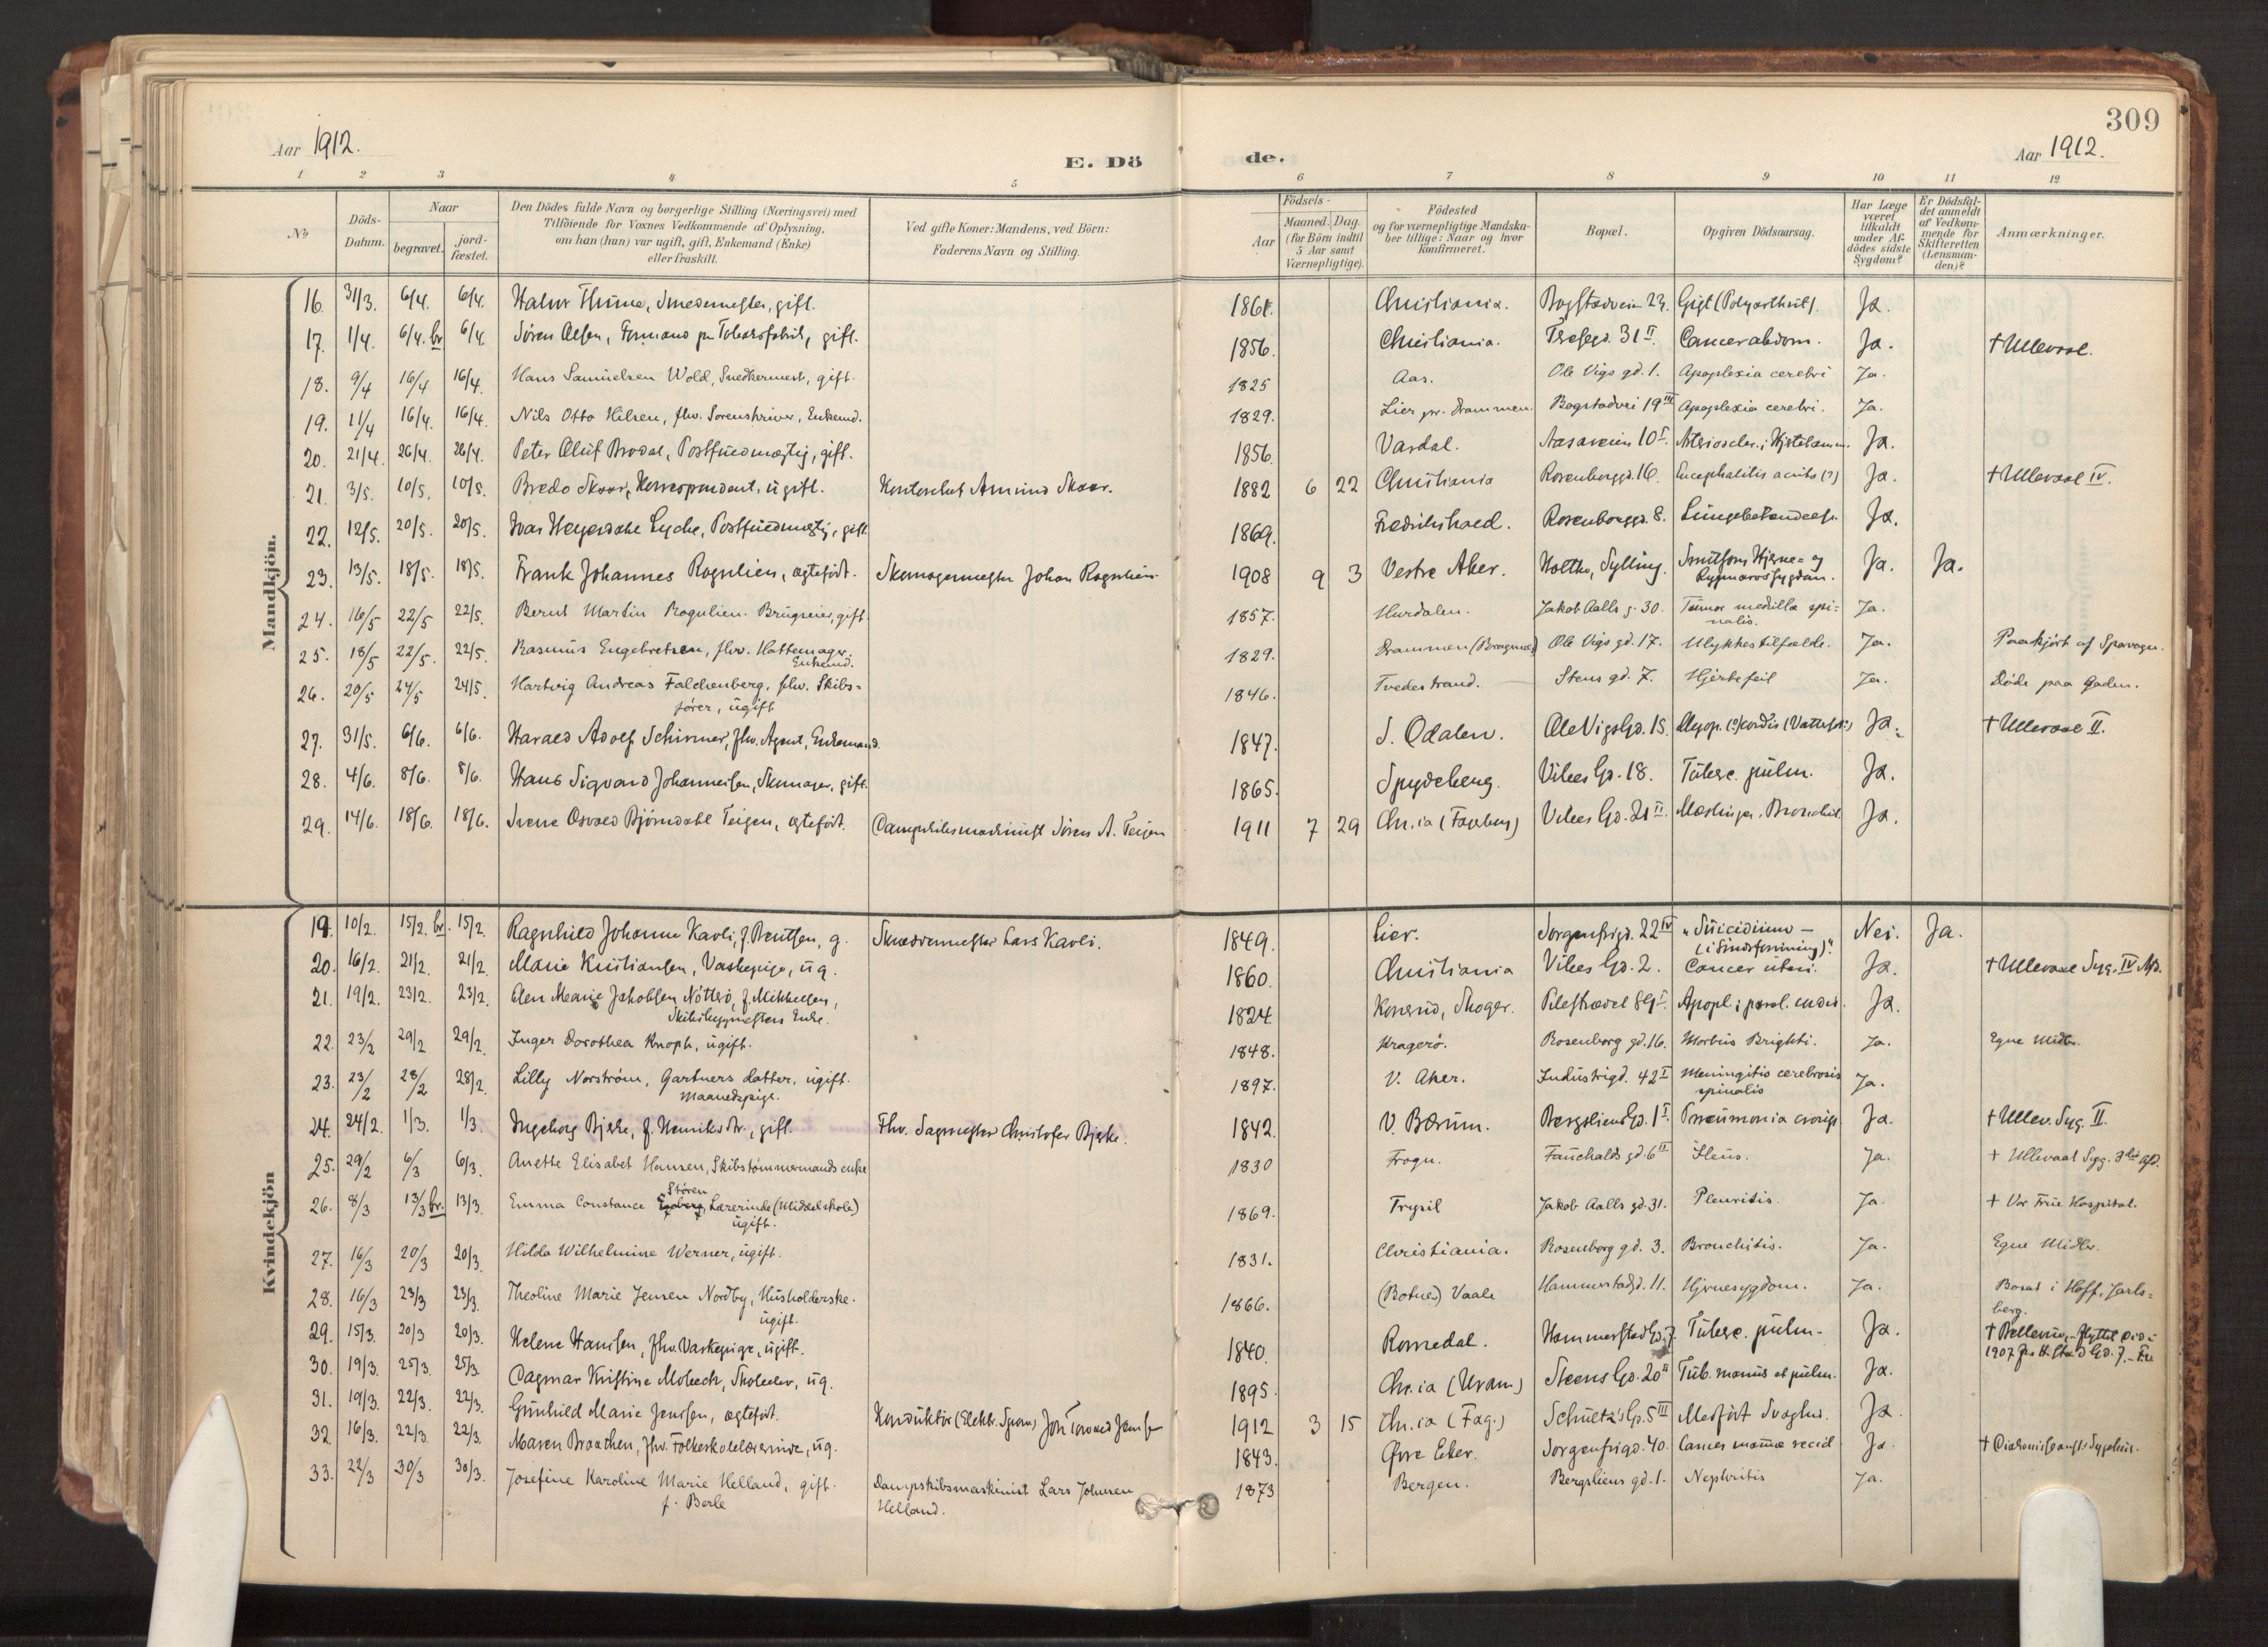 309
Aar 1912.
E. Dö
de.
Aar 1912.
1 2 3 4 5 6 7 8 9 10 11 12
No
Döds-Datum.
Naar
begravet.
jord-fæstet.
Den Dödes fulde Navn og borgerlige Stilling (Næringsvei) med
Tilföiende for Voxnes Vedkommende af Oplysning,
om han (hun) var ugift, gift, Enkemand (Enke)
eller fraskilt.
Ved gifte Koner: Mandens, ved Börn:
Faderens Navn og Stilling.
Födsels-
Aar
Maaned. Dag.
(for Börn indtil
5 Aar samt
Værnepligtige).
Födested
og for værnepligtige Mandska-
ber tillige: Naar og hvor
Konfirmeret.
Bopæl.
Opgiven Dödsaarsag.
Har Læge
været
tilkaldt
under Af-
dödes sidste
Sygdom?
Er Dödsfal-
det anmeldt
af Vedkom-
mende for
Skifteretten
(Lensman-
den)?
Anmærkninger.
Mandkjön.
16. 31/3. 6/4. 6/4. Halvor Thune, Smedemester, gift. 1861. Christiania. Bogstadvein 24. Gigt (Polyarthrit). Ja.
17. 1/4. 6/4. br 6/4. Søren Olsen, Formand paa Tobaksfabrik, gift. 1856. Christiania. 31 II. Cancer abdom. Ja. † Ullevaal.
18. 9/4 16/4 16/4. Hans Samuelsen Wold, Snedkermest., gift. 1825 Aas. Ole Vigs gd. 1. Apoplexia cerebri Ja.
19. 11/4 16/4. 16/4. Nils Otto Hilsen, fhv. Sorenskriver, Enkemd. 1829. Lier pr. Drammen. Bogstadvei 19 III Apoplexia cerebri. Ja.
20. 21/4. 26/4. 26/4. Peter Oluf Brodal, Postfuldmægtig, gift. 1856. Vardal. Aasaveien 10 I. Ja.
21. 3/5. 10/5. 10/5. Bredo Skaar, Korrespondent, ugift. Kontorchef Amund Skaar. 1882 6 22 Christiania Rosenborggd. 16. Encephalitis acuta (?) Ja. † Ullevaal IV.
22. 12/5. 20/5. 20/5. Ivar Heyerdahl Lyche, Postfuldmægtig, gift. 1869. Fredrikshald. Rosenborggd. 8. Lungebetændelse. Ja.
23. 13/5. 18/5. 18/5. Frank Johannes Rognlien, ægtefødt. Skomagermester Johan Rognlien 1908 9 3 Vestre Aker. Holtho, Sylling. Smitsom Hjerne- og
Rygmarvssygdom. Ja. Ja.
24. 16/5 22/5 22/5. Bernt Martin Rognlien. Brugseier, gift. 1857. Hurdalen. Jakob Aalls g. 30. Tumor medulla spi-
nalis. Ja.
25. 18/5 22/5. 22/5. Rasmus Engebretsen, fhv. Hattemager.
Enkemd. 1829. Drammen (Bragernes) Ole Vigs gd. 17. Ulykkestilfælde. Ja. Paakjørt af Sporvogn.
26. 20/5 24/5 24/5. Hartvig Andreas Falchenberg, fhv. Skibs-
fører, ugift 1846. Tvedestrand. Stens gd. 7. Hjertefeil Ja. Døde paa Gaden.
27. 31/5. 6/6. 6/6. Harald Adolf Schirmer, fhv. Agent, Enkemand. 1847. S. Odalen. Ole Vigs Gd. 15. cordis Ja. † Ullevaal II.
28. 4/6. 8/6. 8/6. Hans Sigvard Johannessen, Skomager, gift. 1865. Spydeberg. Vibes Gd. 18. Tuberc. pulm. Ja.
29. 14/6. 18/6. 18/6. Sverre Osvald Bjørndahl Teigen, ægtefødt. Dampskibsmaskinist Søren A. Teigen 1911 7 29 Chr.ia (Fagerborg) Vibes Gd. 21 II. Mæslinger, Bronchit. Ja.
Kvindekjön
19. 10/2. 15/2. br. 15/2. Ragnhild Johanne Kavli, f. Berntsen, g. Skræddermester Lars Kavli. 1849. Lier. Sorgenfrigd. 22 IV "Suicidium –
(i Sindsforvirring)". Nei. Ja.
20. 16/2. 21/2. 21/2. Marie Kristiansen, Vaskepige, ug. 1860. Christiania Vibes Gd. 2. Cancer uteri. Ja. † Ullevaal Syg. IV Afd.
21. 19/2. 23/2. 23/2. Elen Marie Jakobsen Nötterö, f. Mikkelsen,
Enke. 1824. Konerud, Skoger. Pilestrædet 89 I. Apopl. Ja.
22. 23/2 29/2 29/2. Inger Dorothea Knoph, ugift. 1848. Kragerö. Rosenborg gd. 16. Morbus Brighti. Ja. Egne Midler.
23. 23/2 28/2 28/2. Lilly Norström, Gartners datter, ugift.
Maanedspige. 1897. V. Aker. Industrigd. 42 I Meningitis cerebrosis
spinalis Ja.
24. 24/2. 1/3. 1/3. Ingeborg Bjerke, f. Henriksdtr., gift. Fhv. Sagmester Christofer Bjerke. 1842. V. Bærum. Bergsliens Gd. 1 I. Pneumonia Ja. † Ullev. Syg. II.
25. 29/2 6/3 6/3. Anette Elisabet Hansen, Skibstömmermands enke 1830 Frogn. Fauchalds gd. 6 II Ileus. Ja. † Ullevaal Syg. 3die afd.
26. 8/3 13/3 br. 13/3. Emma Constance Stören
Lærerinde (Middelskole)
ugift. 1869. Trysil Jakob Aalls gd. 31. Pleuritis. Ja. † Vor Frue Hospital.
27. 16/3 20/3 20/3. Hilda Wilhelmine Werner, ugift. 1831. Christiania. Rosenborg gd. 3. Bronchitis. Ja. Egne Midler.
28. 16/3 23/3 23/3. Theoline Marie Jensen Nordby, Husholderske.
ugift. 1866. (Botne) Vaale Hammerstadgd. 11. Hjernesygdom. Ja. Bosat i Hoff, Jarls-
berg.
29. 15/3. 20/3 20/3. Helene Hansen, fhv. Vaskepige, ugift. 1840. Romedal. Hammerstad Gd. 7. Tuberc. pulm. Ja. † Bellevue, – flyttet
1907
30. 19/3. 25/3. 25/3. Dagmar Kristine Molbech, Skoleelev, ug. 1895. Chr.ia (Uran.) Steens Gd. 20 II Tub. manus et pulm. Ja.
31. 19/3. 22/3. 22/3. Gunhild Marie Jenssen, ægtefødt. Konduktör (Elektr. Sporv.) Jenssen 1912 3 15 Chr.ia (Fag.) Schultz's Gd. 5 III Medfødt Svaghed. Ja.
32. 16/3. 22/3. 22/3. Maren Braathen, fhv. Folkeskolelærerinde, ug. 1843. Øvre Eker. Sorgenfrigd. 40. Cancer mammæ recid. Ja. † Diakonisseanst. Sygehus.
33. 22/3 30/3 30/3. Josefine Karoline Marie Helland, gift.
f. Berle Dampskibsmaskinist Lars Johnsen
Helland. 1873 Bergen. Bergsliens gd. 1. Nephritis Ja.